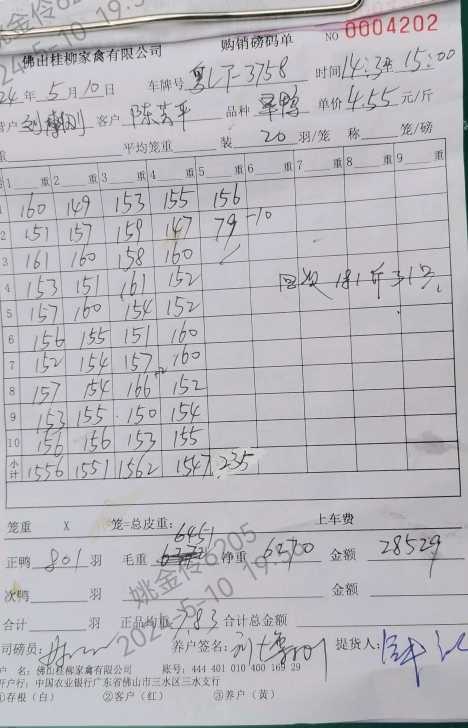 佛山桂柳家禽有限公司 购销磅码单 NO 0004202
24年 5 月 10 日 车牌号 粤LT-3758 时间 14:3 15:00
客户 陈芳平 品种 单价 4.55 元/斤
重 平均笼重 装 20 羽/笼 称 笼/磅
1 重 2 重 3 重 4 重 5 重 6 重 7 重 8 重 9 重
1 160 149 153 155 156
2 151 157 159 147 79 -10
3 161 160 158 160
4 153 151 161 152 181斤31只
5 157 160 154 152
6 156 155 151 160
7 152 154 157 160
8 157 154 166 152
9 153 155 150 154
10 156 156 153 155
小计 1556 1551 1562 1547 235
笼重 X 笼=总皮重: 上车费
6451
正鸭 801 羽 毛重 净重 6270 金额 28529
次鸭 羽 金额
合计 羽 正品均重 7.83 合计总金额
司磅员: 养户签名: 提货人:
户 名: 佛山桂柳家禽有限公司 账号: 444 401 010 400 169 29
开户行: 中国农业银行广东省佛山市三水区三水支行
①存根(白) ②客户(红) ③养户(黄)
姚金伶6205